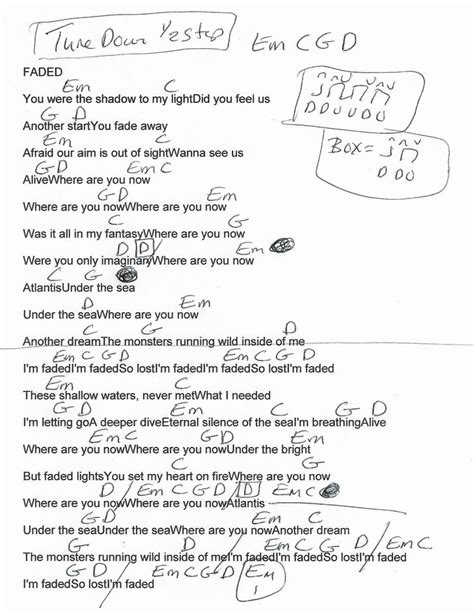 Tune Down 1/2 Step
Em C G D
FADED
Em C
You were the shadow to my lightDid you feel us
G D
Another startYou fade away
Em C
Afraid our aim is out of sightWanna see us
G D Em C
AliveWhere are you now
G D Em
Where are you nowWhere are you now
C G
Was it all in my fantasyWhere are you now
D D Em
Were you only imaginaryWhere are you now
C G
AtlantisUnder the sea
D Em
Under the seaWhere are you now
C G D
Another dreamThe monsters running wild inside of me
Em C G D Em C G D
I'm fadedI'm fadedSo lostI'm fadedI'm fadedSo lostI'm faded
Em C
These shallow waters, never metWhat I needed
G D Em C G D
I'm letting goA deeper diveEternal silence of the seaI'm breathingAlive
Em C G D Em
Where are you nowWhere are you nowUnder the bright
C G
But faded lightsYou set my heart on fireWhere are you now
D / Em C G D / D Em C
Where are you nowWhere are you nowAtlantis
G D Em C
Under the seaUnder the seaWhere are you nowAnother dream
G D Em C G D / Em C
The monsters running wild inside of meI'm fadedI'm fadedSo lostI'm faded
G D Em C G D / Em
I'm fadedSo lostI'm faded
D D U U D U
Box=
D D U